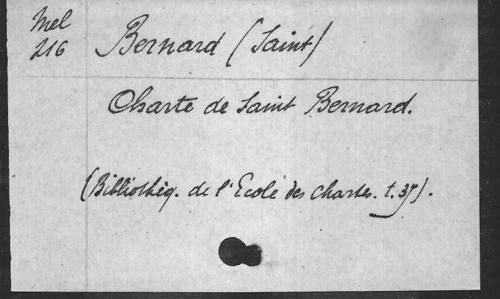 Mel
216
Bernard (Saint)
Charte de Saint Bernard.
(Bibliothèq. de l'Ecole des Chartes. t.